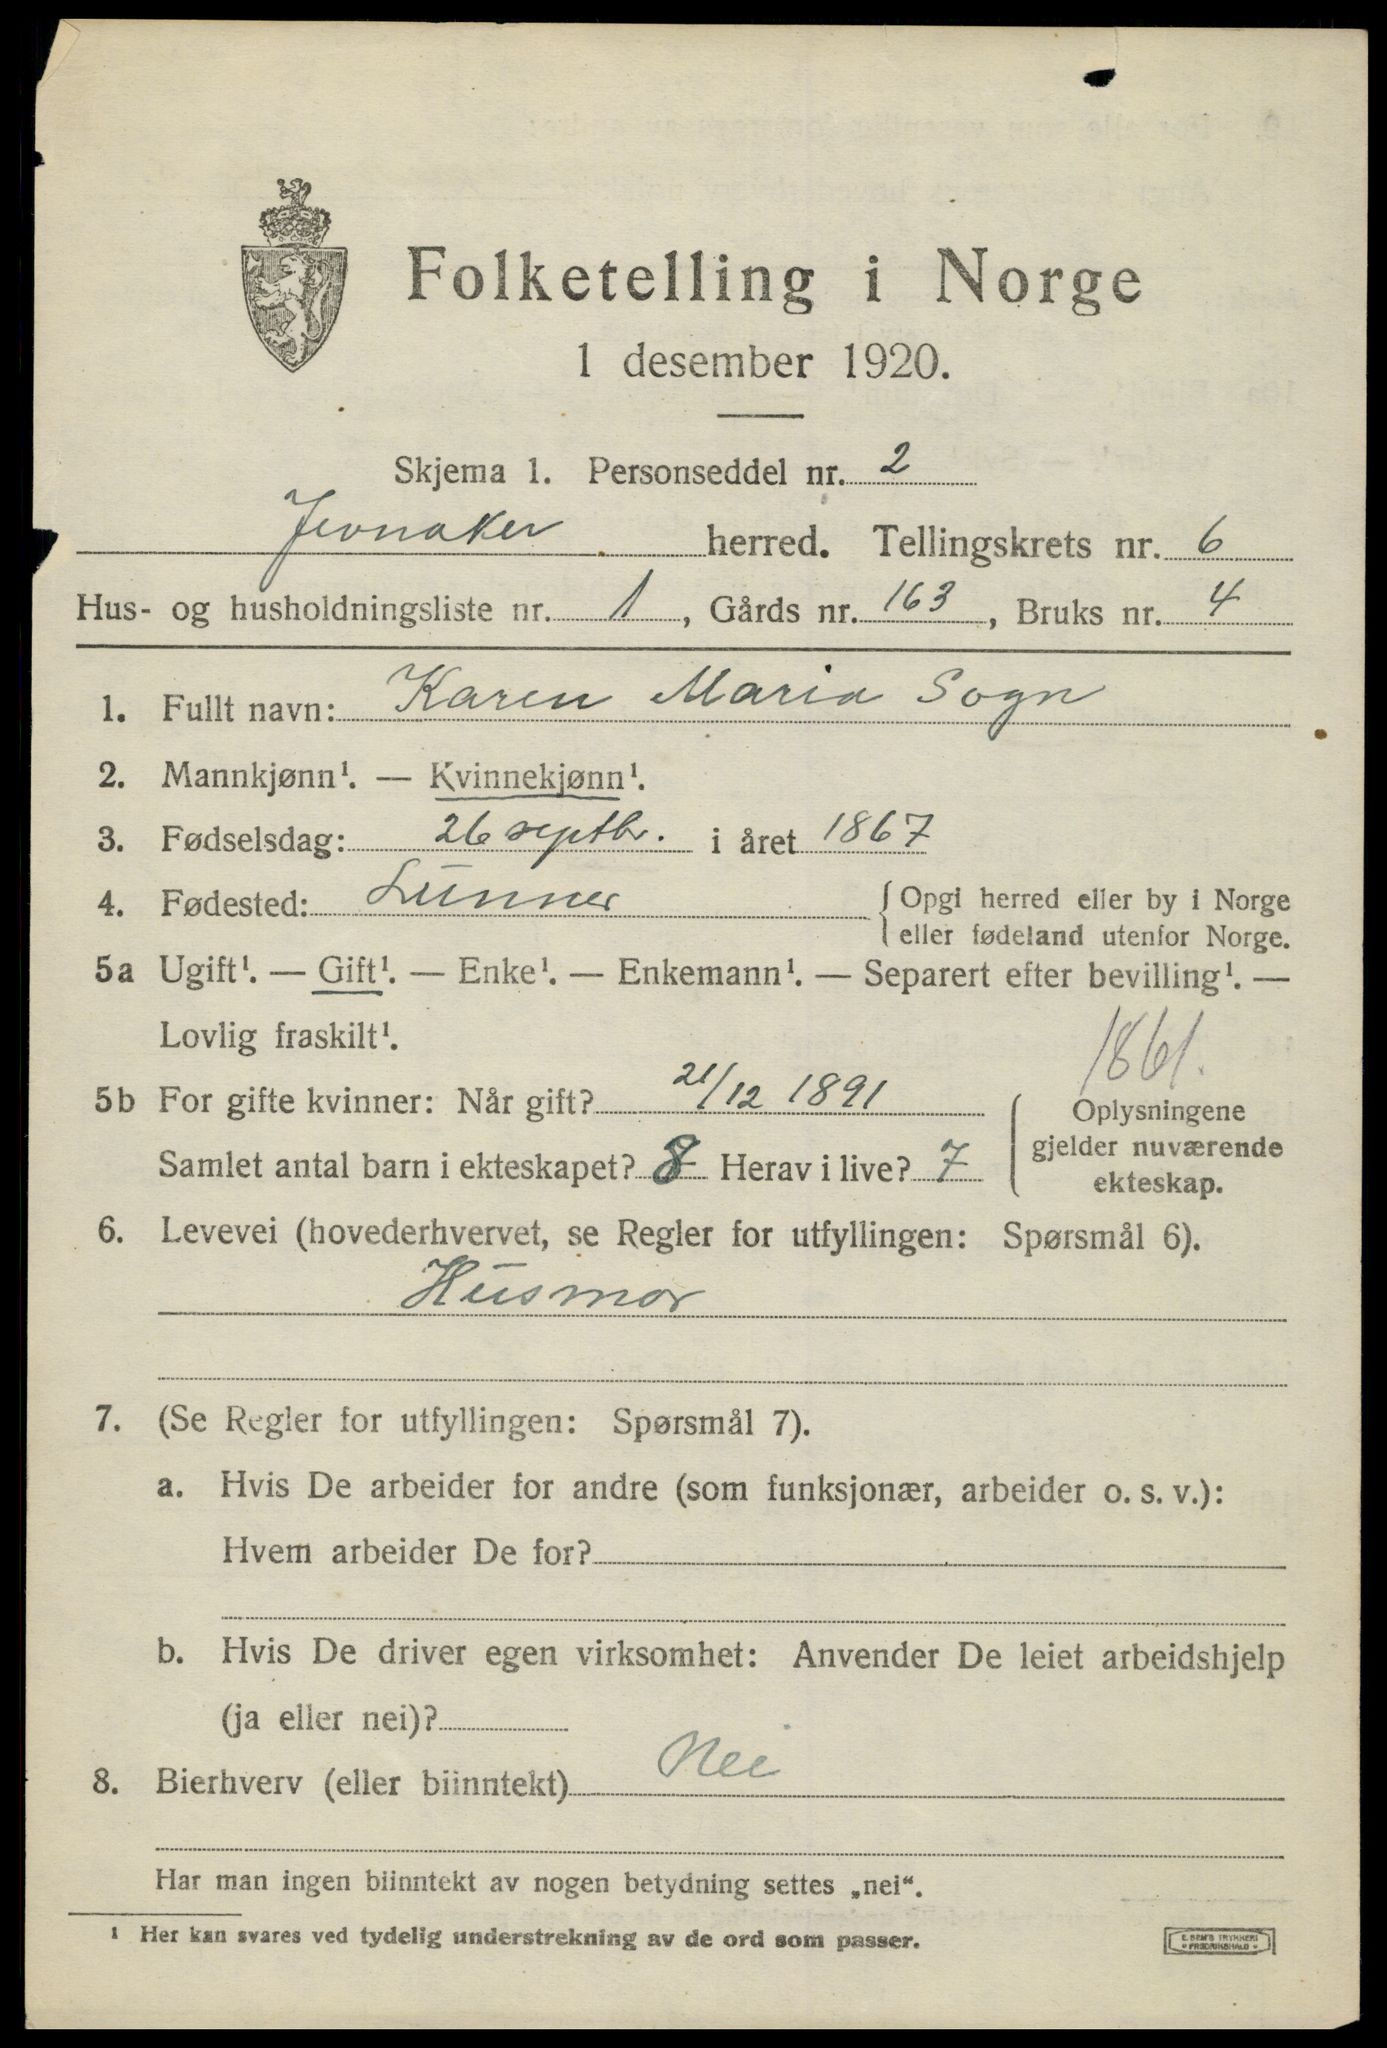 Folketelling i Norge
1 desember 1920.
Skjema 1. Personseddel nr. 2
Jevnaker herred. Tellingskrets nr. 6
Hus- og husholdningsliste nr. 1, Gårds nr. 163, Bruks nr. 4
1. Fullt navn: Karen Maria Sogn
2. Mannkjønn¹. — Kvinnekjønn¹.
3. Fødselsdag: 26 septbr. i året 1867
4. Fødested: Lunner { Opgi herred eller by i Norge
eller fødeland utenfor Norge.
5a Ugift¹. — Gift¹. — Enke¹. — Enkemann¹. — Separert efter bevilling¹. —
Lovlig fraskilt¹.
1861.
5b For gifte kvinner: Når gift? 21/12 1891
Samlet antal barn i ekteskapet? 8 Herav i live? 7
Oplysningene
gjelder nuværende
ekteskap.
6. Levevei (hovederhvervet, se Regler for utfyllingen: Spørsmål 6).
Husmor
7. (Se Regler for utfyllingen: Spørsmål 7).
a. Hvis De arbeider for andre (som funksjonær, arbeider o. s. v.):
Hvem arbeider De for?
b. Hvis De driver egen virksomhet: Anvender De leiet arbeidshjelp
(ja eller nei)?
8. Bierhverv (eller biinntekt) Nei
Har man ingen biinntekt av nogen betydning settes „nei“.
¹ Her kan svares ved tydelig understrekning av de ord som passer.
E. SEM'S TRYKKERI
FREDRIKSHALD